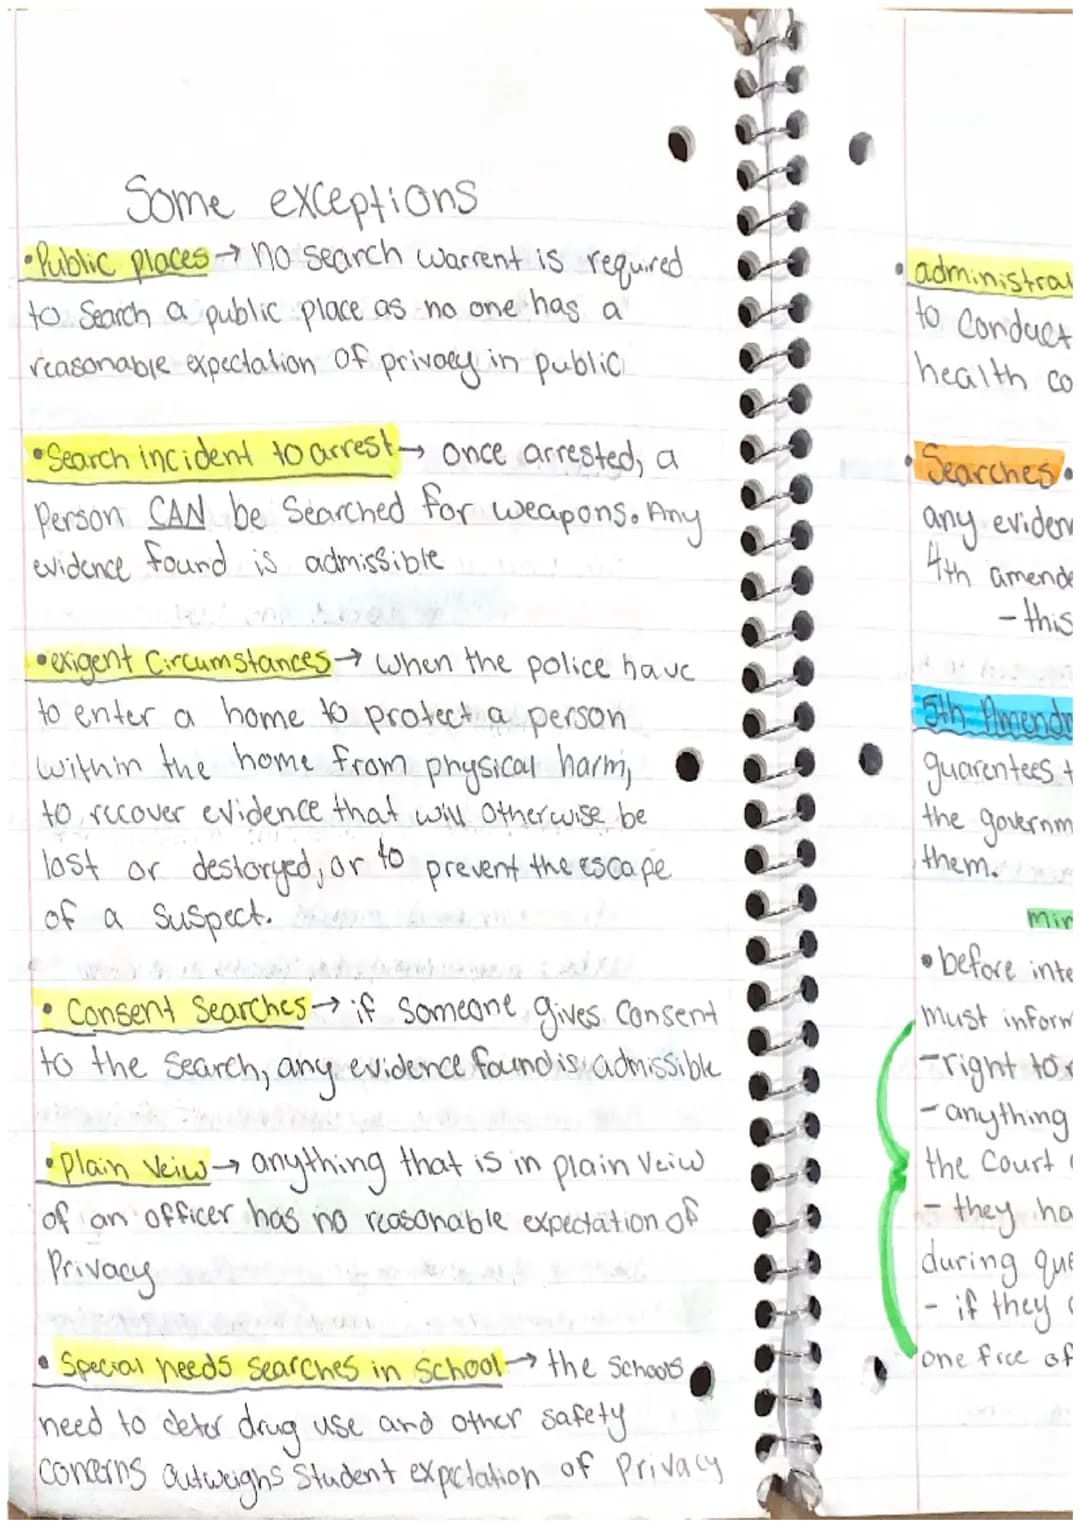 Some exceptions
•Public places → no search warrent is required
to search a public place as no one has a
reasonable expectation of privacy in public
•Search incident to arrest → once arrested, a
person CAN be searched for weapons. Any
evidence found is admissible
•exigent circumstances → when the police have
to enter a home to protect a person
within the home from physical harm,
to recover evidence that will otherwise be
lost or destoryed, or to prevent the escape
of a suspect.
• Consent Searches → if someone gives consent
to the search, any evidence found is admissible
•plain veiw → anything that is in plain veiw
of an officer has no reasonable expectation of
privacy
• Special needs searches in school → the schools
need to deter drug use and other safety
concerns outweighs student expectation of privacy
• administrat
to conduct
health co
• Searches •
any eviden
4th amende
- this
5th Amendm
guarentees t
the governm
them.
mir
• before inte
must inform
- right to r
- anything
the court
- they ha
during que
- if they
one free of